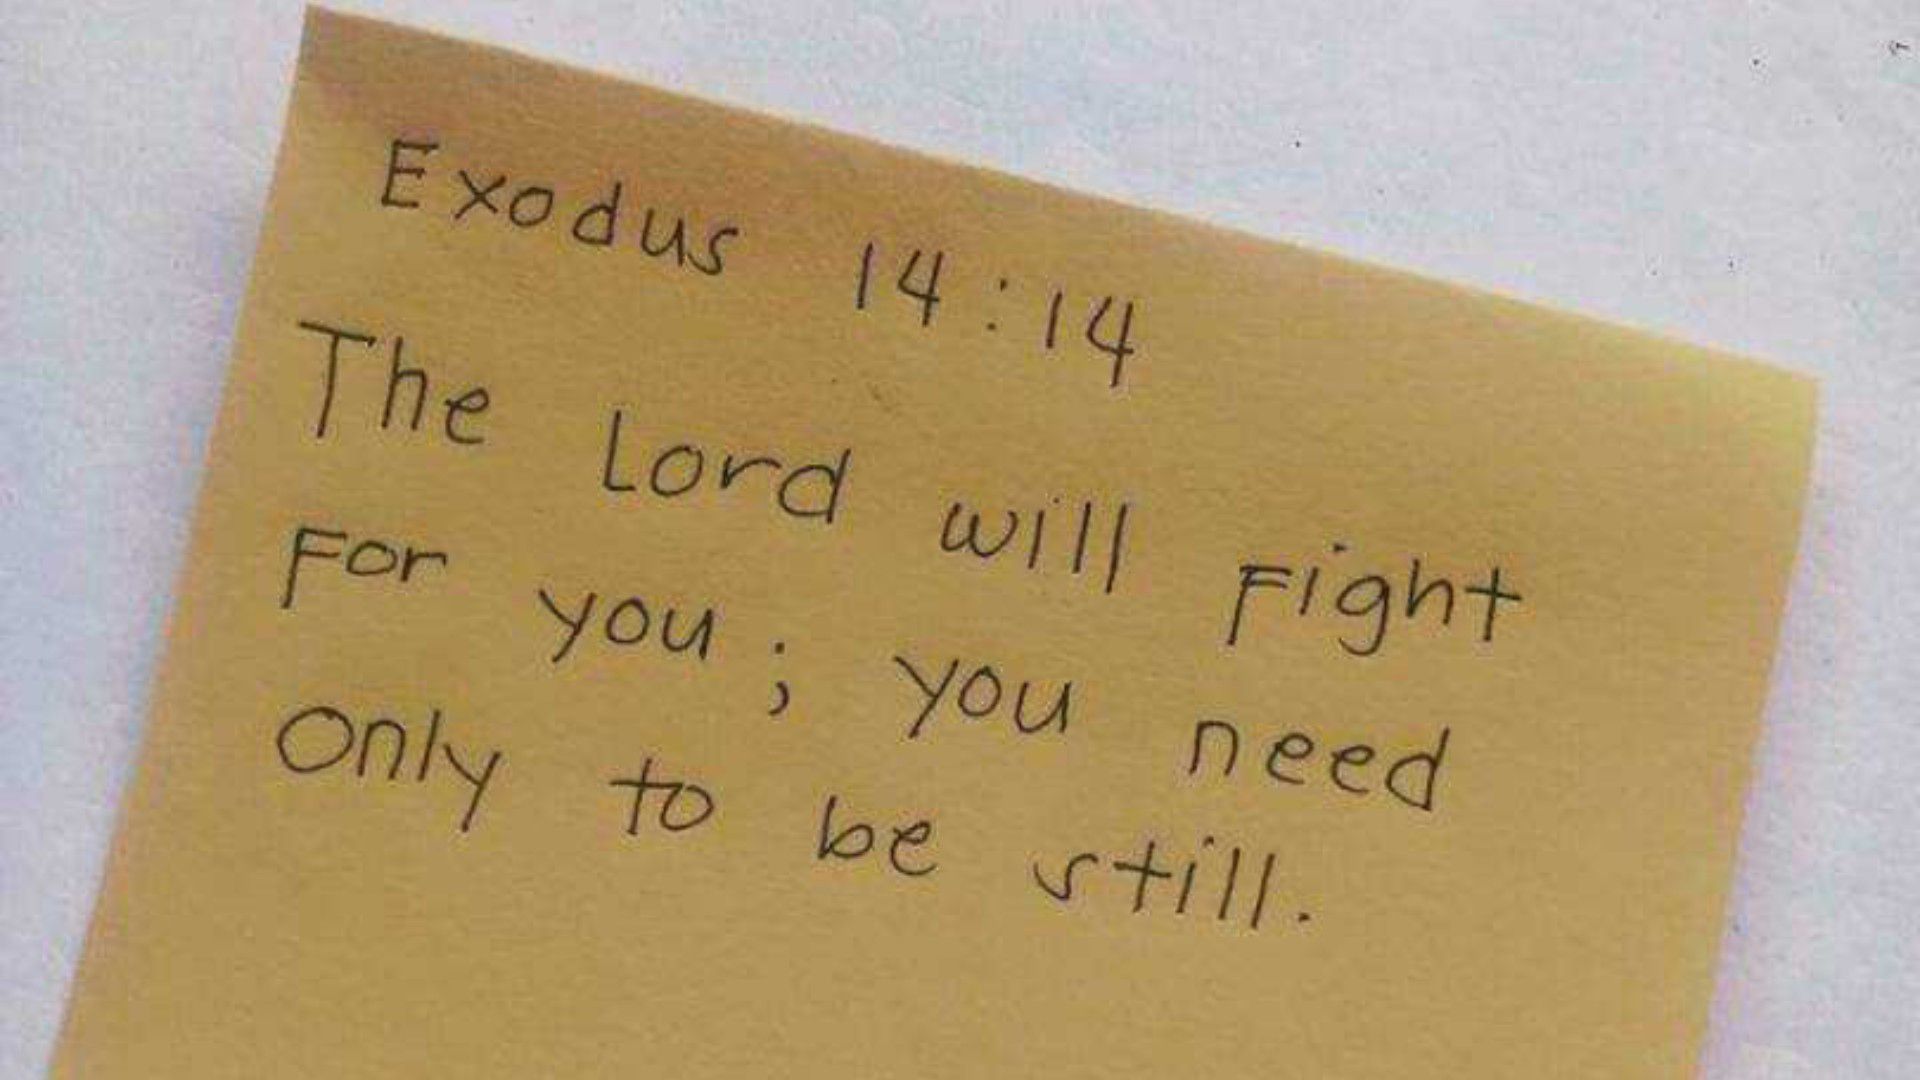 Exodus 14:14
The Lord will Fight
For you; you need
only to be still.